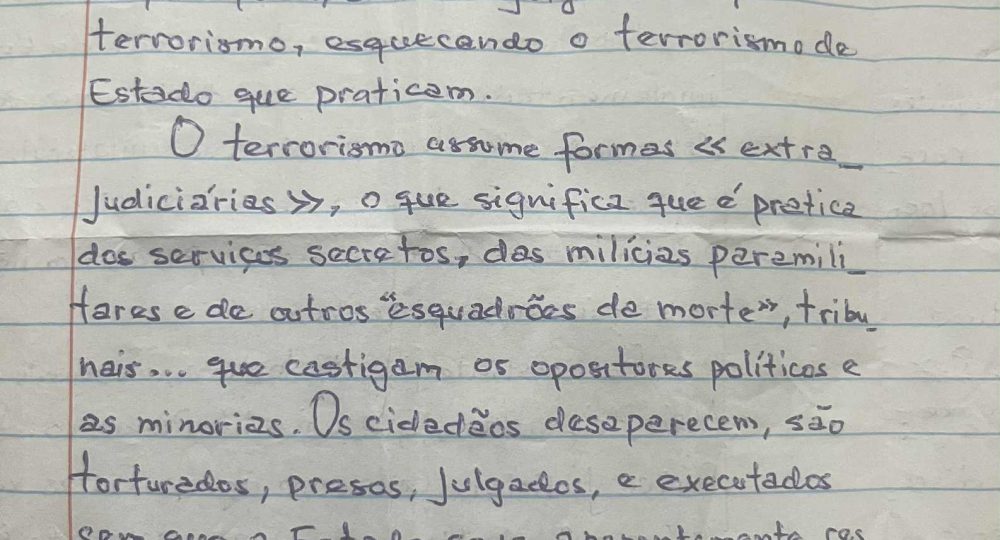 terrorismo, esquecando o terrorismo de
Estado que praticam.
O terrorismo assume formas << extra_
judiciárias >>, o que significa que é pratica
dos serviços secretos, das milícias paramili_
tares e de outros “esquadrões da morte”, tribu_
nais... que castigam os opositores políticos e
as minorias. Os cidadãos desaparecem, são
torturados, presos, julgados, e executados
sem que o Estado